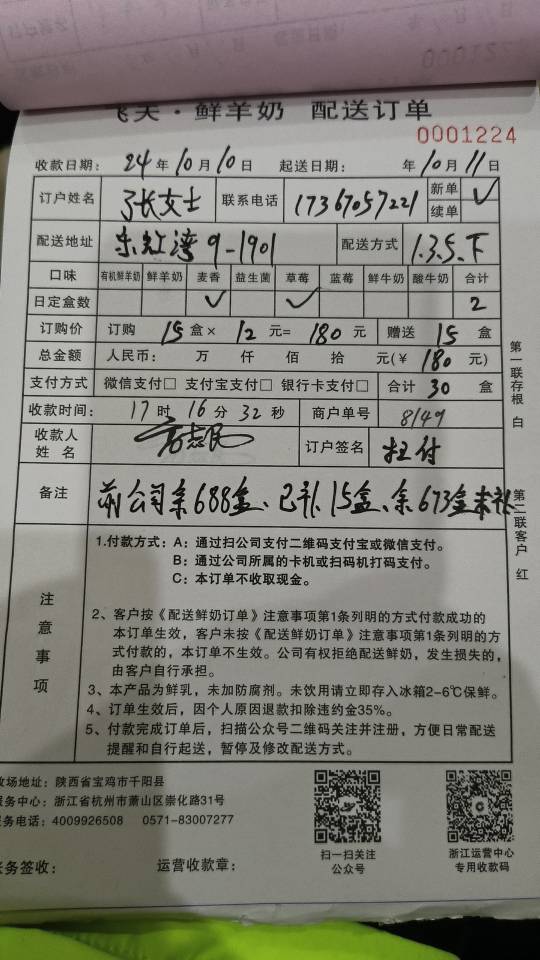 飞天·鲜羊奶 配送订单
0001224
收款日期：24年10月10日 起送日期： 年10月11日
订户姓名 张女士 联系电话 17367057221 新单 ✓
续单
配送地址 东虹湾9-1901 配送方式 1.3.5.下
口味 有机鲜羊奶 鲜羊奶 麦香 益生菌 草莓 蓝莓 鲜牛奶 酸牛奶 合计
日定盒数 ✓ ✓ 2
订购价 订购 15 盒× 12 元= 180 元 赠送 15 盒
总金额 人民币： 万 仟 佰 拾 元(¥ 180 元)
支付方式 微信支付□ 支付宝支付□ 银行卡支付□ 合计 30 盒
收款时间： 17时16分32秒 商户单号 8149
收款人
姓 名 订户签名 扫付
备注 前公司余688盒、已补15盒、余673盒未补
注意事项
1.付款方式：A：通过扫公司支付二维码支付宝或微信支付。
B：通过公司所属的卡机或扫码机打码支付。
C：本订单不收取现金。
2、客户按《配送鲜奶订单》注意事项第1条列明的方式付款成功的
本订单生效，客户未按《配送鲜奶订单》注意事项第1条列明的方
式付款的，本订单不生效。公司有权拒绝配送鲜奶，发生损失的，
由客户自行承担。
3、本产品为鲜乳，未加防腐剂。未饮用请立即存入冰箱2-6℃保鲜。
4、订单生效后，因个人原因退款扣除违约金35%。
5、付款完成订单后，扫描公众号二维码关注并注册，方便日常配送
提醒和自行起送，暂停及修改配送方式。
第一联存根 白
第二联客户 红
牧场地址：陕西省宝鸡市千阳县
服务中心：浙江省杭州市萧山区崇化路31号
服务电话：4009926508 0571-83007277
扫一扫关注
公众号
浙江运营中心
专用收款码
账务签收： 运营收款章：